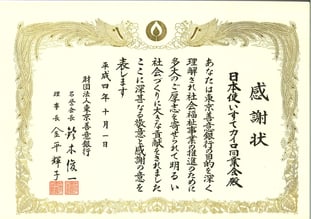 感謝状
日本使いすてカイロ同業会殿
あなたは東京善意銀行の目的を深く
理解され社会福祉事業の推進のために
多大のご厚志を寄せられて明るい
社会づくりに大きな貢献をされました
ここに深甚なる敬意と感謝の意を
表します
平成四年十月一日
財団法人東京善意銀行
名誉会長 鈴木俊一
理事長 金平輝子